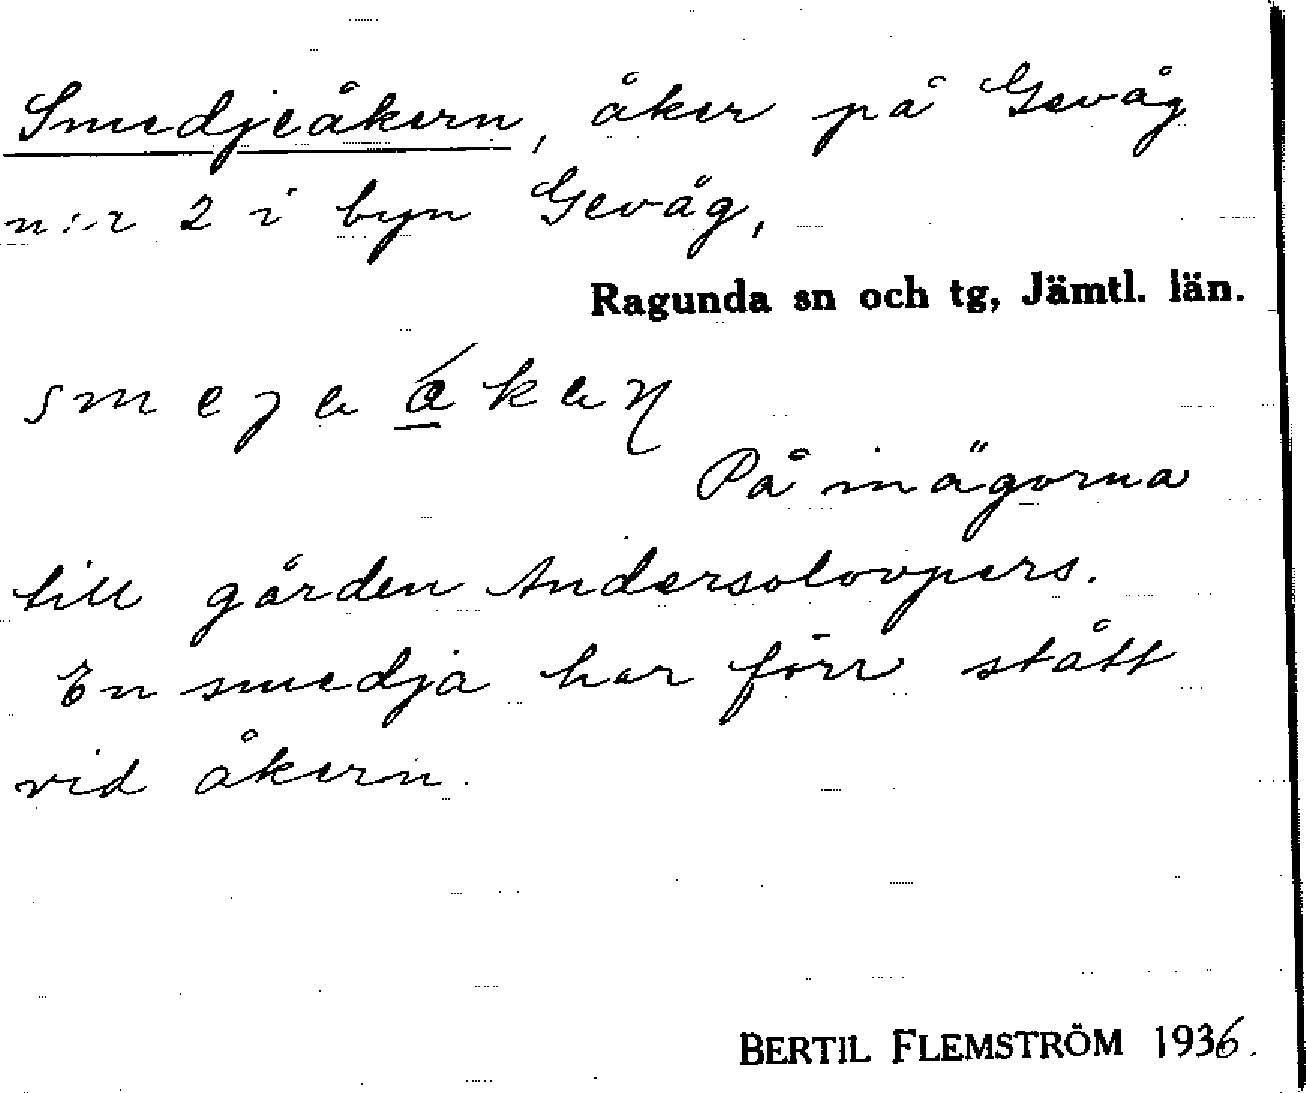 Smedjeåkern, åker på Gevåg
n:r 2 i byn Gevåg,
Ragunda sn och tg, Jämtl. län.
På inägorna
till gården Andersolovpers.
En smedja har förr stått
vid åkern.
BERTIL FLEMSTRÖM 1936.